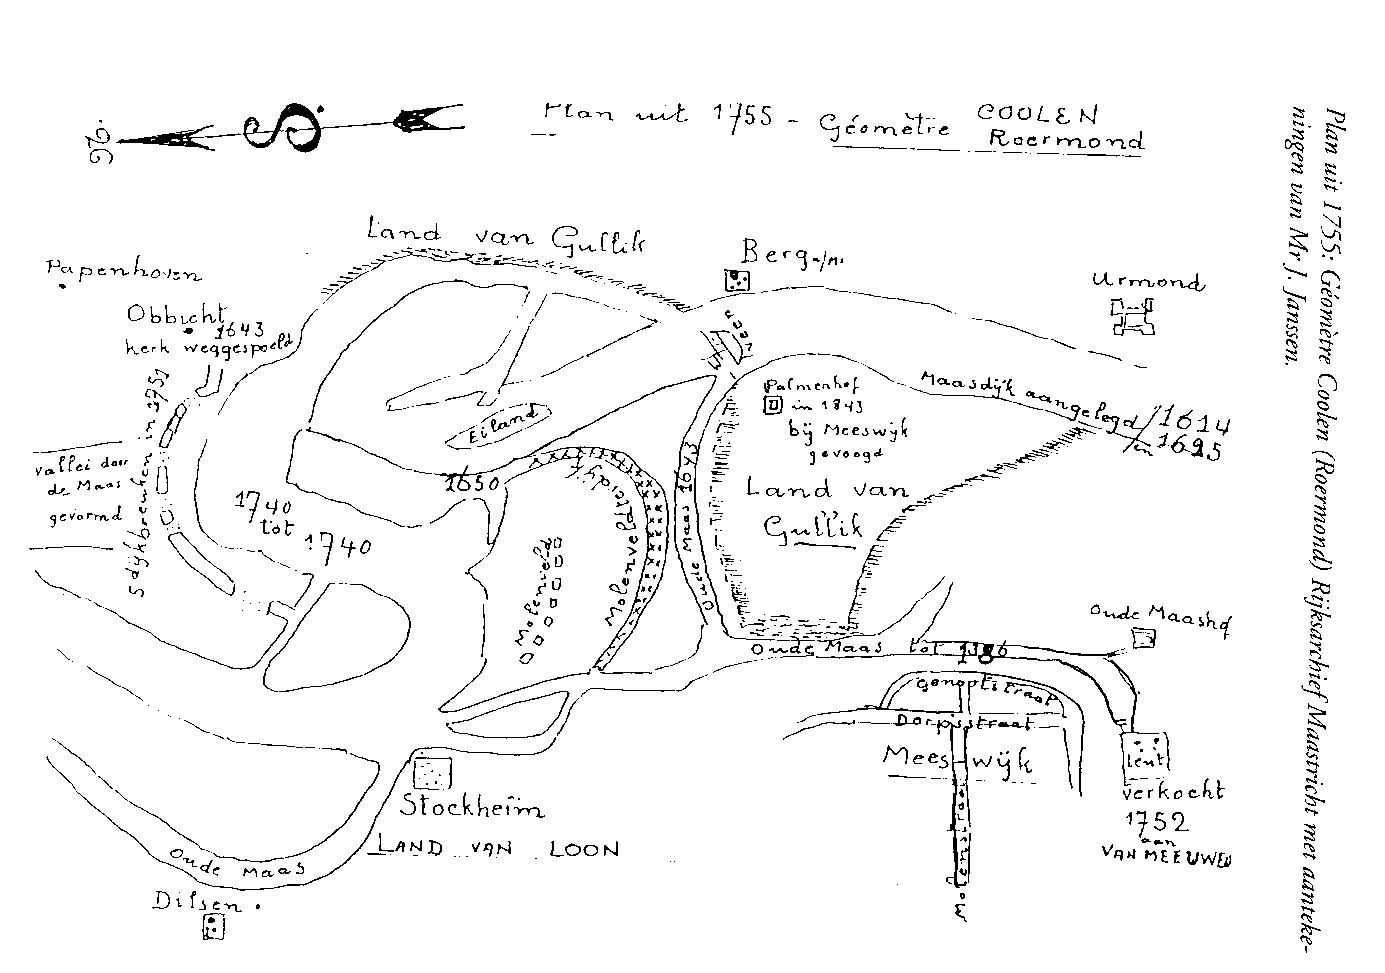 Plan uit 1755 - Géomètre COOLEN
Roermond
Land van Gullik
Papenhoven
Obbicht
1643
kerk weggespoeld
Berg a/M.
Urmond
veer
Maasdijk aangelegd 1614
in 1695
Palmenhof
in 1843
bij Meeswijk
gevoegd
Land van
Gullik
Eiland
1650
vallei door
de Maas
gevormd
5 dijkbreuken in 1751
1740
tot
1740
Molenveld
Molenveldterdijk
Oude Maas 1643
Oude Maas tot 1386
Oude Maashof
Genootstraat
Dorpsstraat
Meeswijk
Molenstraat
Leut
verkocht
1752
aan
VAN MEEUWEN
Stockheim
LAND VAN LOON
Oude Maas
Dilsen
Plan uit 1755: Géomètre Coolen (Roermond) Rijksarchief Maastricht met aanteke-
ningen van Mr J. Janssen.